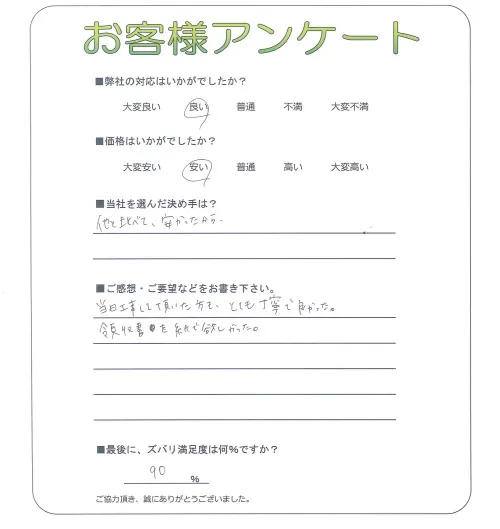 お客様アンケート
■弊社の対応はいかがでしたか？
大変良い 良い 普通 不満 大変不満
■価格はいかがでしたか？
大変安い 安い 普通 高い 大変高い
■当社を選んだ決め手は？
他と比べて、安かったから。
■ご感想・ご要望などをお書き下さい。
当日工事して頂いた方も、とても丁寧で良かった。
領収書を紙で欲しかった。
■最後に、ズバリ満足度は何%ですか？
90 %
ご協力頂き、誠にありがとうございました。